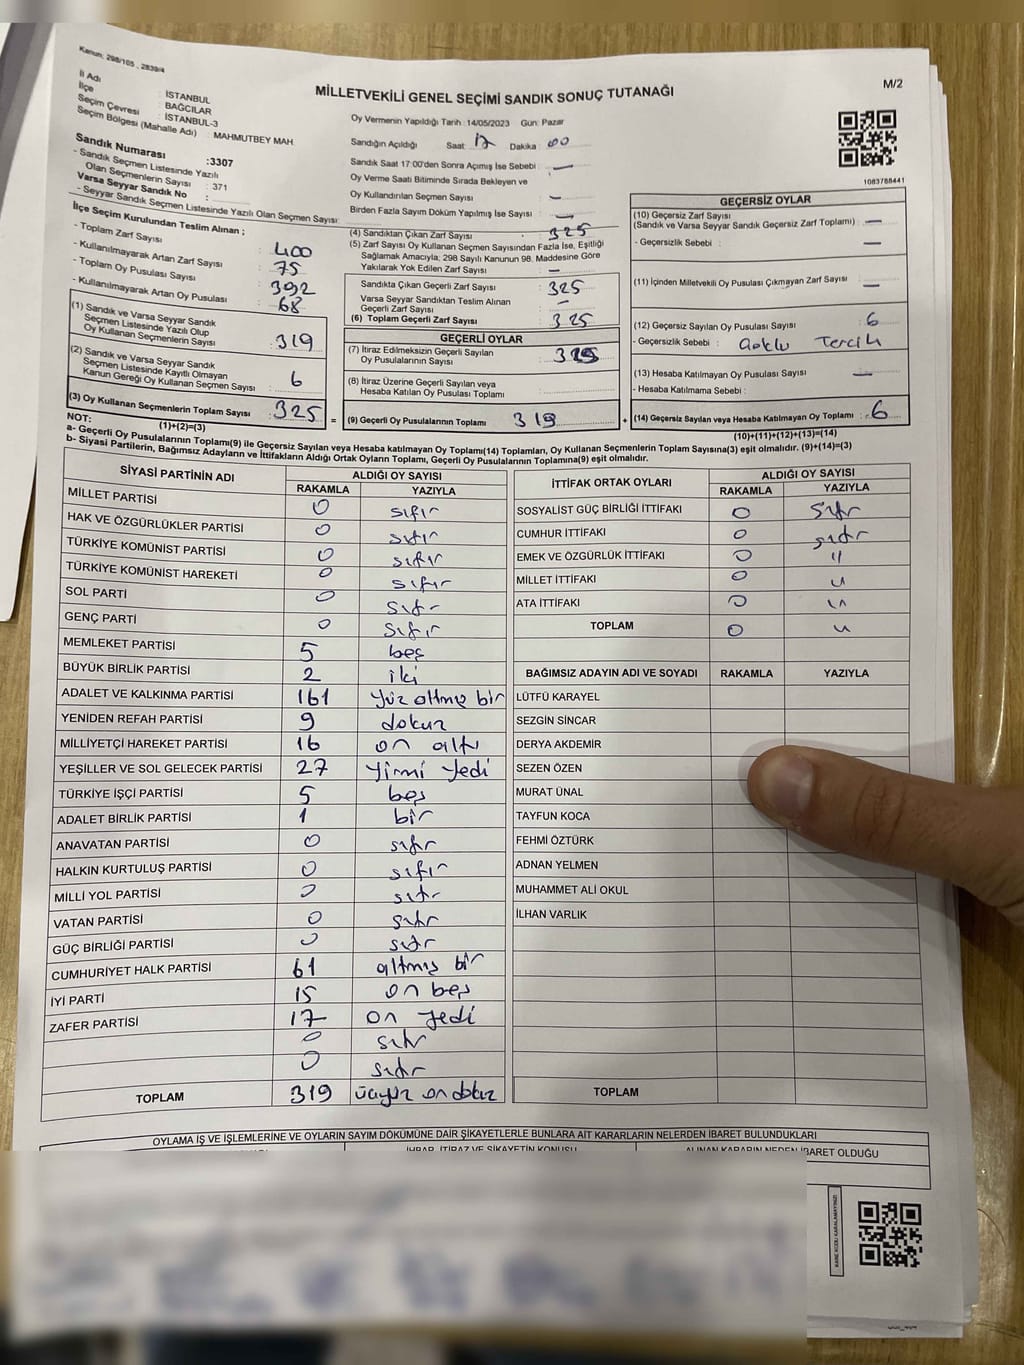 Kanun: 298/105 , 2839/4
MİLLETVEKİLİ GENEL SEÇİMİ SANDIK SONUÇ TUTANAĞI
M/2
İl Adı : İSTANBUL
İlçe : BAĞCILAR
Seçim Çevresi : İSTANBUL-3
Seçim Bölgesi (Mahalle Adı) : MAHMUTBEY MAH.
Sandık Numarası :3307
- Sandık Seçmen Listesinde Yazılı
Olan Seçmenlerin Sayısı : 371
Varsa Seyyar Sandık No :
- Seyyar Sandık Seçmen Listesinde Yazılı Olan Seçmen Sayısı:
İlçe Seçim Kurulundan Teslim Alınan ;
- Toplam Zarf Sayısı : 400
- Kullanılmayarak Artan Zarf Sayısı : 75
- Toplam Oy Pusulası Sayısı : 392
- Kullanılmayarak Artan Oy Pusulası : 68
(1) Sandık ve Varsa Seyyar Sandık
Seçmen Listesinde Yazılı Olup
Oy Kullanan Seçmenlerin Sayısı : 319
(2) Sandık ve Varsa Seyyar Sandık
Seçmen Listesinde Kayıtlı Olmayan
Kanun Gereği Oy Kullanan Seçmen Sayısı : 6
(3) Oy Kullanan Seçmenlerin Toplam Sayısı : 325
Oy Vermenin Yapıldığı Tarih :14/05/2023 Gün: Pazar
Sandığın Açıldığı Saat : 17 Dakika : 00
Sandık Saat 17:00'den Sonra Açımış İse Sebebi : —
Oy Verme Saati Bitiminde Sırada Bekleyen ve
Oy Kullandırılan Seçmen Sayısı : —
Birden Fazla Sayım Döküm Yapılmış İse Sayısı : —
(4) Sandıktan Çıkan Zarf Sayısı : 325
(5) Zarf Sayısı Oy Kullanan Seçmen Sayısından Fazla İse, Eşitliği
Sağlamak Amacıyla; 298 Sayılı Kanunun 98. Maddesine Göre
Yakılarak Yok Edilen Zarf Sayısı : —
Sandıkta Çıkan Geçerli Zarf Sayısı : 325
Varsa Seyyar Sandıktan Teslim Alınan
Geçerli Zarf Sayısı : —
(6) Toplam Geçerli Zarf Sayısı : 325
GEÇERLİ OYLAR
(7) İtiraz Edilmeksizin Geçerli Sayılan
Oy Pusulalarının Sayısı :
(8) İtiraz Üzerine Geçerli Sayılan veya
Hesaba Katılan Oy Pusulası Toplamı :
(9) Geçerli Oy Pusulalarının Toplamı 319
1083788441
GEÇERSİZ OYLAR
(10) Geçersiz Zarf Sayısı
(Sandık ve Varsa Seyyar Sandık Geçersiz Zarf Toplamı) : —
- Geçersizlik Sebebi : —
(11) İçinden Milletvekili Oy Pusulası Çıkmayan Zarf Sayısı : —
(12) Geçersiz Sayılan Oy Pusulası Sayısı : 6
- Geçersizlik Sebebi : Çoklu Tercih
(13) Hesaba Katılmayan Oy Pusulası Sayısı : —
- Hesaba Katılmama Sebebi :
(14) Geçersiz Sayılan veya Hesaba Katılmayan Oy Toplamı : 6
NOT: (1)+(2)=(3)
(10)+(11)+(12)+(13)=(14)
a- Geçerli Oy Pusulalarının Toplamı(9) ile Geçersiz Sayılan veya Hesaba katılmayan Oy Toplamı(14) Toplamları, Oy Kullanan Seçmenlerin Toplam Sayısına(3) eşit olmalıdır. (9)+(14)=(3)
b- Siyasi Partilerin, Bağımsız Adayların ve İttifakların Aldığı Ortak Oyların Toplamı, Geçerli Oy Pusulalarının Toplamına(9) eşit olmalıdır.
SİYASİ PARTİNİN ADI ALDIĞI OY SAYISI
RAKAMLA YAZIYLA
MİLLET PARTİSİ 0 sıfır
HAK VE ÖZGÜRLÜKLER PARTİSİ 0 sıfır
TÜRKİYE KOMÜNİST PARTİSİ 0 sıfır
TÜRKİYE KOMÜNİST HAREKETİ 0 sıfır
SOL PARTİ 0 sıfır
GENÇ PARTİ 0 sıfır
MEMLEKET PARTİSİ 5 beş
BÜYÜK BİRLİK PARTİSİ 2 iki
ADALET VE KALKINMA PARTİSİ 161 yüz altmış bir
YENİDEN REFAH PARTİSİ 9 dokuz
MİLLİYETÇİ HAREKET PARTİSİ 16 on altı
YEŞİLLER VE SOL GELECEK PARTİSİ 27 yirmi yedi
TÜRKİYE İŞÇİ PARTİSİ 5 beş
ADALET BİRLİK PARTİSİ 1 bir
ANAVATAN PARTİSİ 0 sıfır
HALKIN KURTULUŞ PARTİSİ 0 sıfır
MİLLİ YOL PARTİSİ 0 sıfır
VATAN PARTİSİ 0 sıfır
GÜÇ BİRLİĞİ PARTİSİ 0 sıfır
CUMHURİYET HALK PARTİSİ 61 altmış bir
İYİ PARTİ 15 on beş
ZAFER PARTİSİ 17 on yedi
0 sıfır
0 sıfır
TOPLAM 319 üçyüz on dokuz
İTTİFAK ORTAK OYLARI ALDIĞI OY SAYISI
RAKAMLA YAZIYLA
SOSYALİST GÜÇ BİRLİĞİ İTTİFAKI 0 sıfır
CUMHUR İTTİFAKI 0 sıfır
EMEK VE ÖZGÜRLÜK İTTİFAKI 0 "
MİLLET İTTİFAKI 0 "
ATA İTTİFAKI 0 "
TOPLAM 0 "
BAĞIMSIZ ADAYIN ADI VE SOYADI RAKAMLA YAZIYLA
LÜTFÜ KARAYEL
SEZGİN SİNCAR
DERYA AKDEMİR
SEZEN ÖZEN
MURAT ÜNAL
TAYFUN KOCA
FEHMİ ÖZTÜRK
ADNAN YELMEN
MUHAMMET ALİ OKUL
İLHAN VARLIK
TOPLAM
OYLAMA İŞ VE İŞLEMLERİNE VE OYLARIN SAYIM DÖKÜMÜNE DAİR ŞİKAYETLERLE BUNLARA AİT KARARLARIN NELERDEN İBARET BULUNDUKLARI
İHBAR, İTİRAZ VE ŞİKAYETİN KONUSU ALINAN KARARIN NEDEN İBARET OLDUĞU
KARE KODU KARALAMAYINIZ!